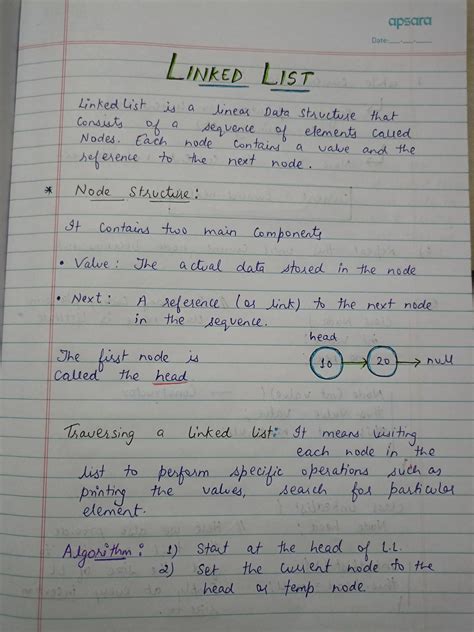 apsara
Date:
LINKED LIST
Linked List is a linear Data Structure that
Consists of a sequence of elements called
Nodes. Each node contains a value and the
reference to the next node.
* Node Structure:
It Contains two main Components
• Value: The actual data stored in the node
• Next: A reference (or link) to the next node
in the sequence.
head
The first node is
10 20 → null
Called the head
Traversing a linked list: It means visiting
each node in the
list to perform specific operations such as
printing the values, search for particular
element.
Algorithm: 1) Start at the head of L.L.
2) Set the current node to the
head or temp node.